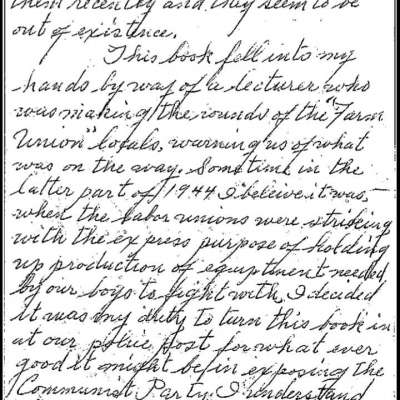 them recently and they seem to be
out of existence.
This book fell into my
hands by way of a lecturer who
was making the rounds of the "Farm
Union" locals, warning us of what
was on the way. Sometime in the
latter part of 1944 I beleive it was,
when the labor unions were striking
with the express purpose of holding
up production of equiptment needed
by our boys to fight with, I decided
it was my duty to turn this book in
at our police post for what ever
good it might be in exposing the
Communist Party. I understand